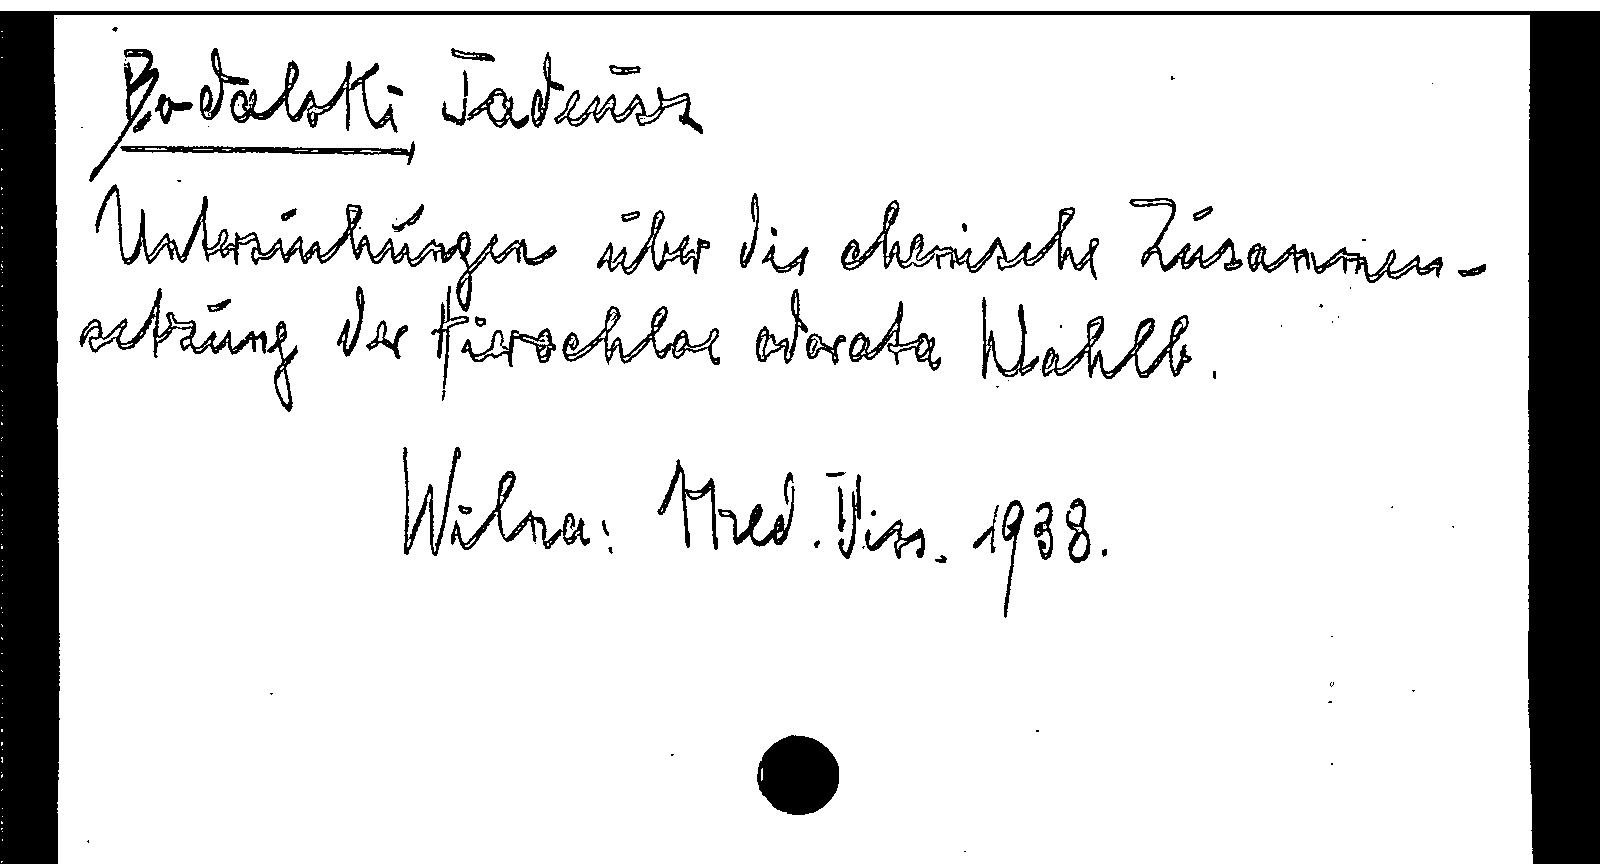 Bodalski Tadeusz
Untersuchungen über die chemische Zusammen-
setzung der Hierochloe odorata Wahlb.
Wilna: Med. Diss. 1938.